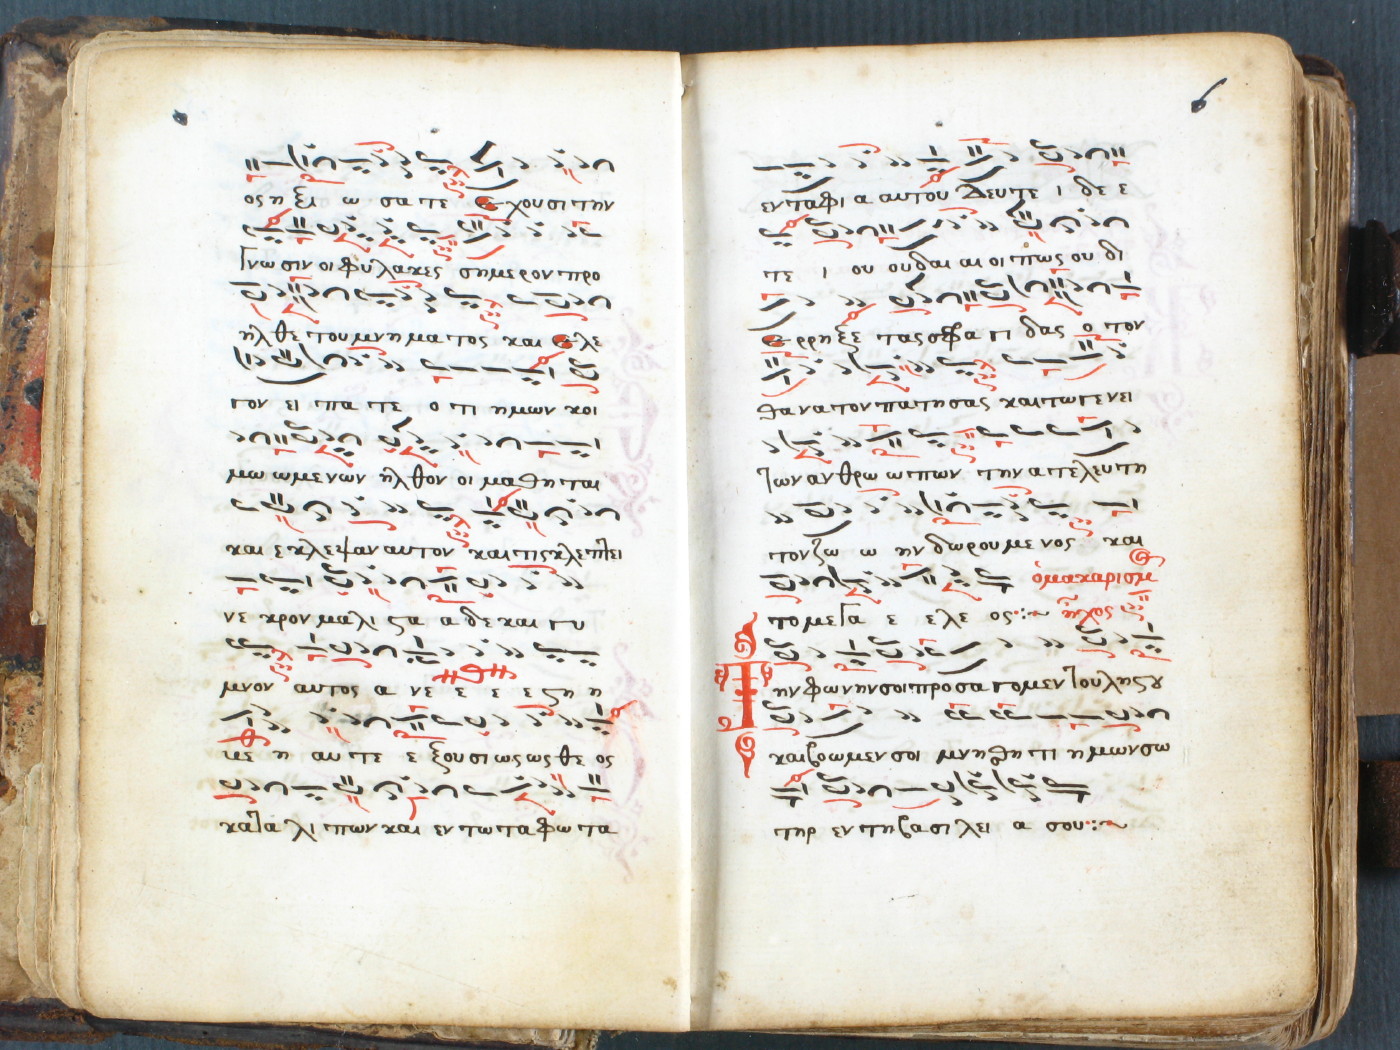 ος η ξι ω σα τε ε χου σι την
γνω σιν οι φυ λα κες ση με ρον προ
ηλ θε του μνη μα τος και ε λε
γον ει πα τε ο τι η μων κοι
μω ω με νων ηλ θον οι μα θη ται
και ε κλε ψαν αυ τον και τις κλε πτει
νε κρον μα λι ςα α δε και γυ
μνον αυ τος α νε ε ε ε ςη η
με η αυ τε ε ξου σι ως ως θε ος
κα τα λι πων και εν τω τα φω τα
εν τα φι α αυ του Δευ τε ι δε ε
τε ι ου ου δαι αι οι πως ου δι
ε ρρη ξε τας σφρα γι δας ο τον
θα να τον πα τη σας και τω γε νει
των αν θρω ω πων την α τε λευ τη
τον ζω ω ην δω ρου με νος και
το με γα ε ε λε ος :~ ὁ μακαρισμ
ἦχος
Τ ην φω νην σοι προ σα γο μεν του λη ςου
και βο ω μεν σοι μνη θη τι η μων σω
τηρ εν τη βα σι λει α σου :~